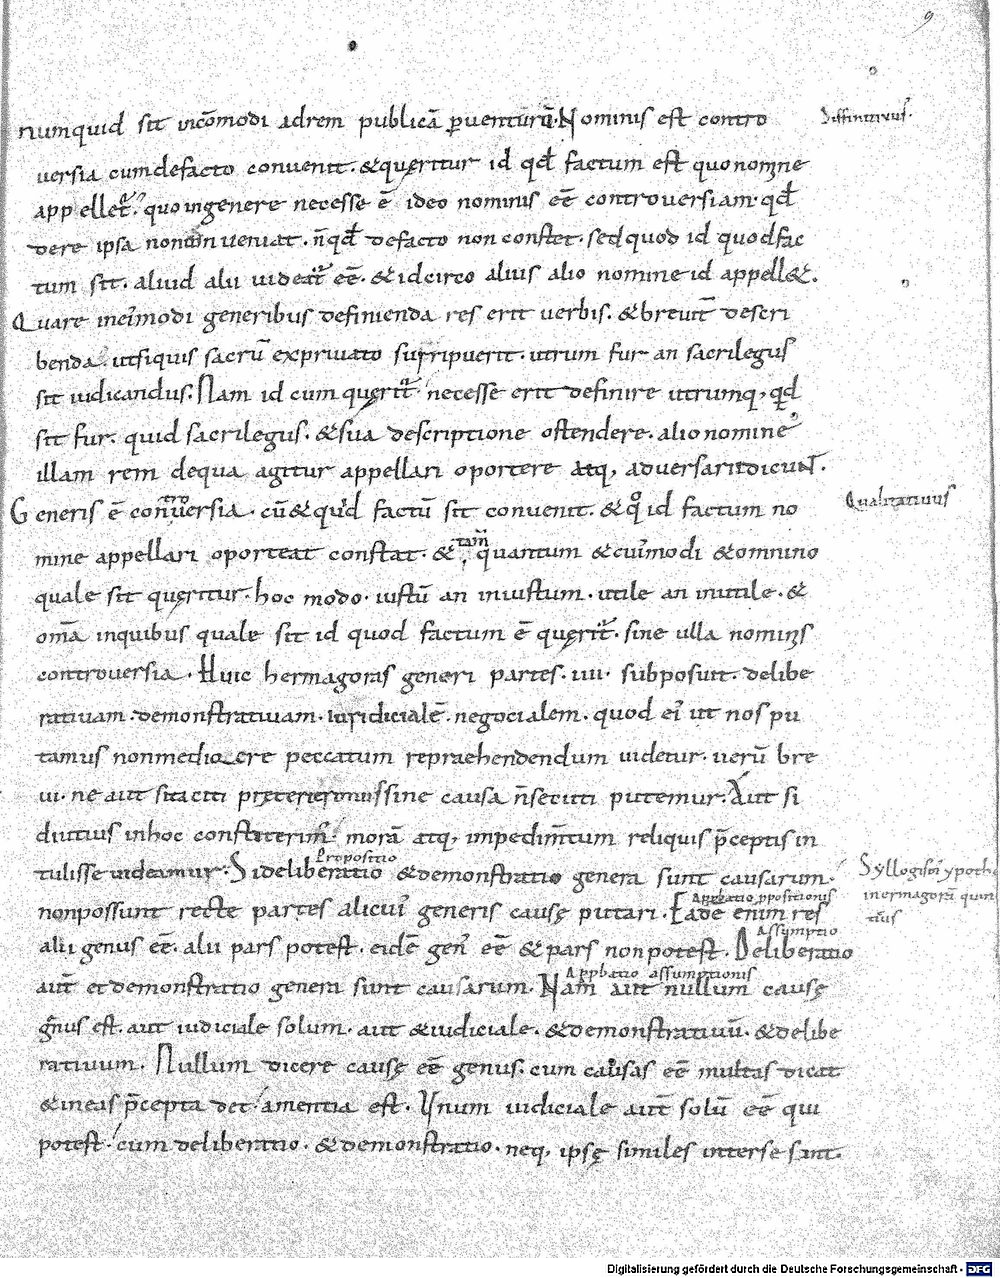 9
numquid sit uicōmodi adrem publicā ꝑuenturū. Nominis est contro
Diffinitiuus.
uersia cumdefacto conuenit. &quęritur id qđ factum est quonomine
appelletʳ. quoingenere necesse ē ideo nominis eē controuersiam. qđ
dere ipsa nonconueniat. n̄qđ defacto non constet. sed quod id quodfac
tum sit. aliud alii uideat̄ eē. &idcirco alius alio nomine id appell&.
Quare inei᾽modi generibus definienda res erit uerbis. &breuit̄ descri
benda. utsiquis sacrū expriuato surripuerit. utrum fur an sacrilegus
sit iudicandus. Nam id cum quęrit̄ necesse erit definire utrumq, qd
sit fur. quid sacrilegus. &sua descriptione ostendere. alionomine
illam rem dequa agitur appellari oportere atq, aduersarii dicunt.
Generis ē controuersia. cū& quid factū sit conuenit. & qͦ id factum no
Qualitatiuus
mine appellari oporteat constat. & tam̄ quantum &cui᾽modi &omnino
quale sit quęritur. hoc modo. iustū an iniustum. utile an inutile. &
om̄a inquibus quale sit id quod factum ē quęrit̄. sine ulla nominis
controuersia. Huic hermagoras generi partes. iiii. subposuit. delibe
ratiuam. demonstratiuam. iuridicialē. negocialem. quod ei᾽ ut nos pu
tamus nonmediocre peccatum repraehendendum uidetur. uerū bre
ui. ne aut si taciti pręterierimus sine causa n̄secuti putemur. Aut si
diutius inhoc constiterim᾽. morā atq, impedim̄tum reliquis p̄ceptis in
Propositio
tulisse uideamur. Si deliberatio &demonstratio genera sunt causarum.
Syllogism᾽ ypoth
inermagorā quin
tius
Apꝓbatio ꝓpositionis
nonpossunt recte partes alicui᾽ generis causę putari. Eadē enim res
Assumptio
alii genus eē. alii pars potest. eidē gen᾽ eē &pars nonpotest. Deliberatio
Apꝓbatio assumptionis
aut̄ et demonstratio genera sunt causarum. Nam aut nullum causę
ḡnus est. aut iudiciale solum. aut &iudiciale. &demonstratiuū. &delibe
ratiuum. Nullum dicere causę eē genus. cum causas eē multas dicat
&ineas p̄cepta det. amentia est. Vnum iudiciale aut̄ solū eē qui
potest. cum deliberatio. &demonstratio. neq, ipsę similes interse sint.
Digitalisierung gefördert durch die Deutsche Forschungsgemeinschaft - DFG